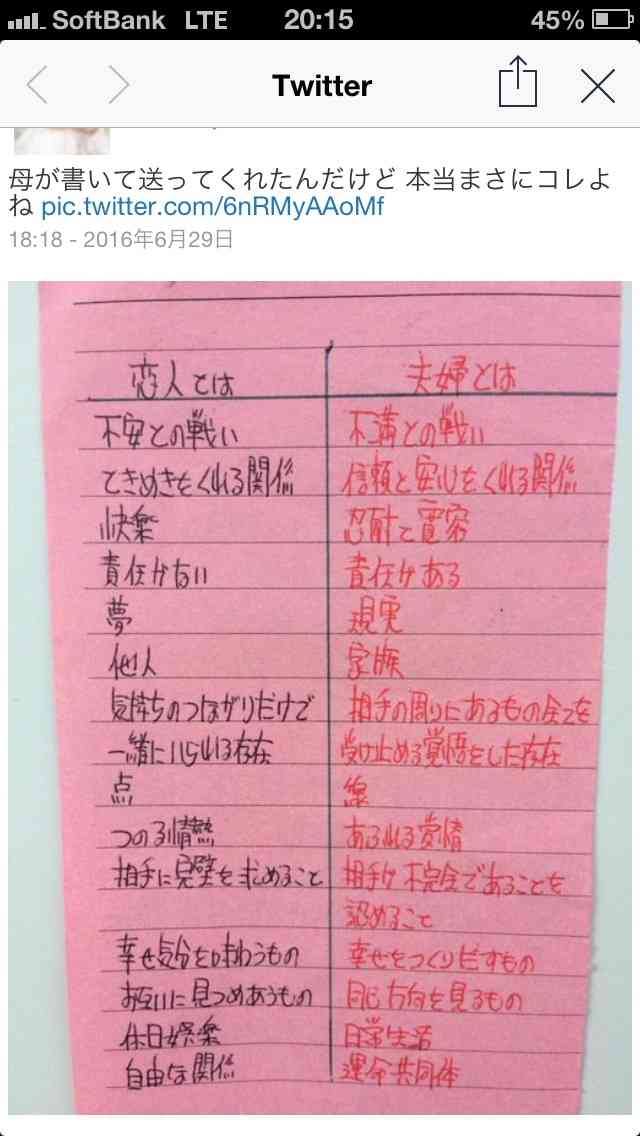 SoftBank LTE 20:15 45%
Twitter
母が書いて送ってくれたんだけど 本当まさにコレよ
ね pic.twitter.com/6nRMyAAoMf
18:18 - 2016年6月29日
恋人とは 夫婦とは
不安との戦い 不満との戦い
ときめきをくれる関係 信頼と安心をくれる関係
快楽 忍耐と寛容
責任がない 責任がある
夢 現実
他人 家族
気持ちのつながりだけで 相手の周りにあるもの全てを
一緒にいられる存在 受け止める覚悟をした存在
点 線
つのる情熱 あふれる愛情
相手に完璧を求めること 相手が不完全であることを
認めること
幸せ気分を味わうもの 幸せをつくりだすもの
お互いに見つめあうもの 同じ方向を見るもの
休日娯楽 日常生活
自由な関係 運命共同体